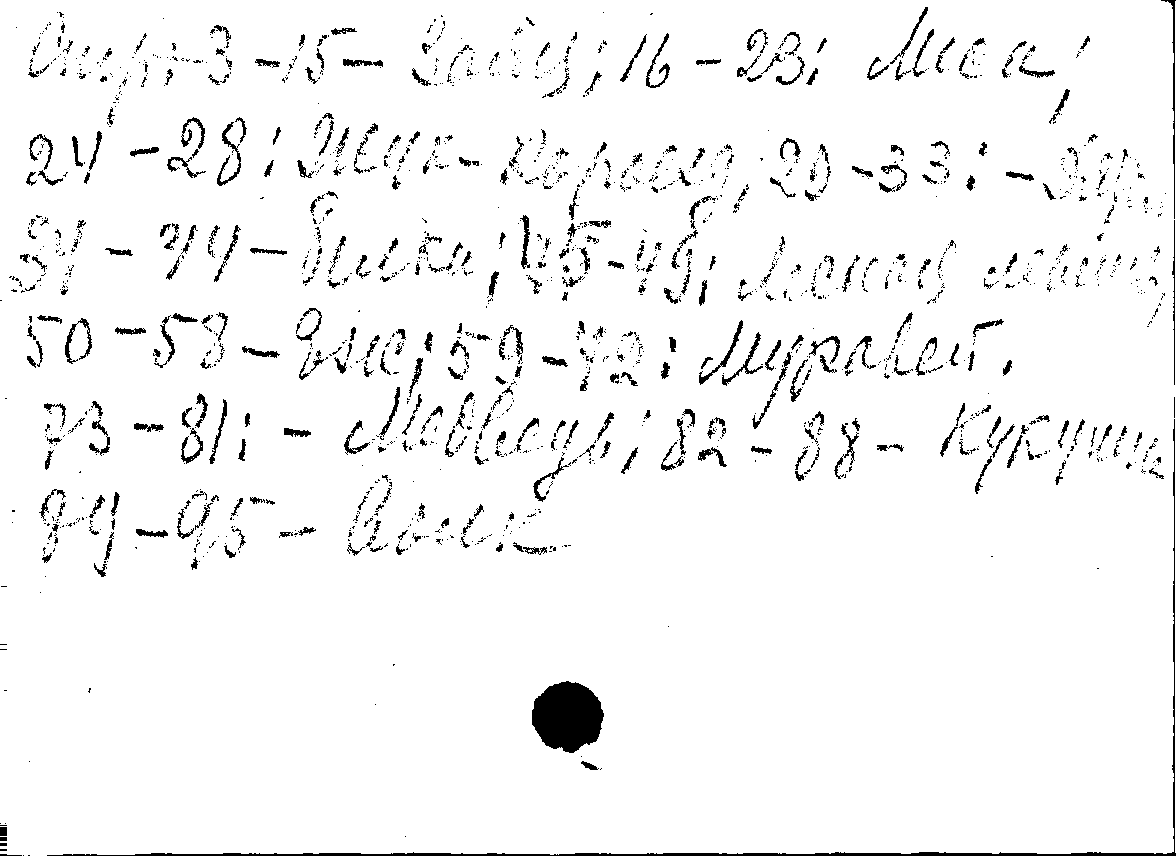 Стр: 3-15 - Заяц; 16-23: Лиса;
24-28: Жук-Короед, 29-33: -
34-44 - Белка; 45-49: Лесная
50-58 - Ёж; 59-72: Муравей.
73-81: - Медведь; 82-88 - Кукушка
89-95 - Волк